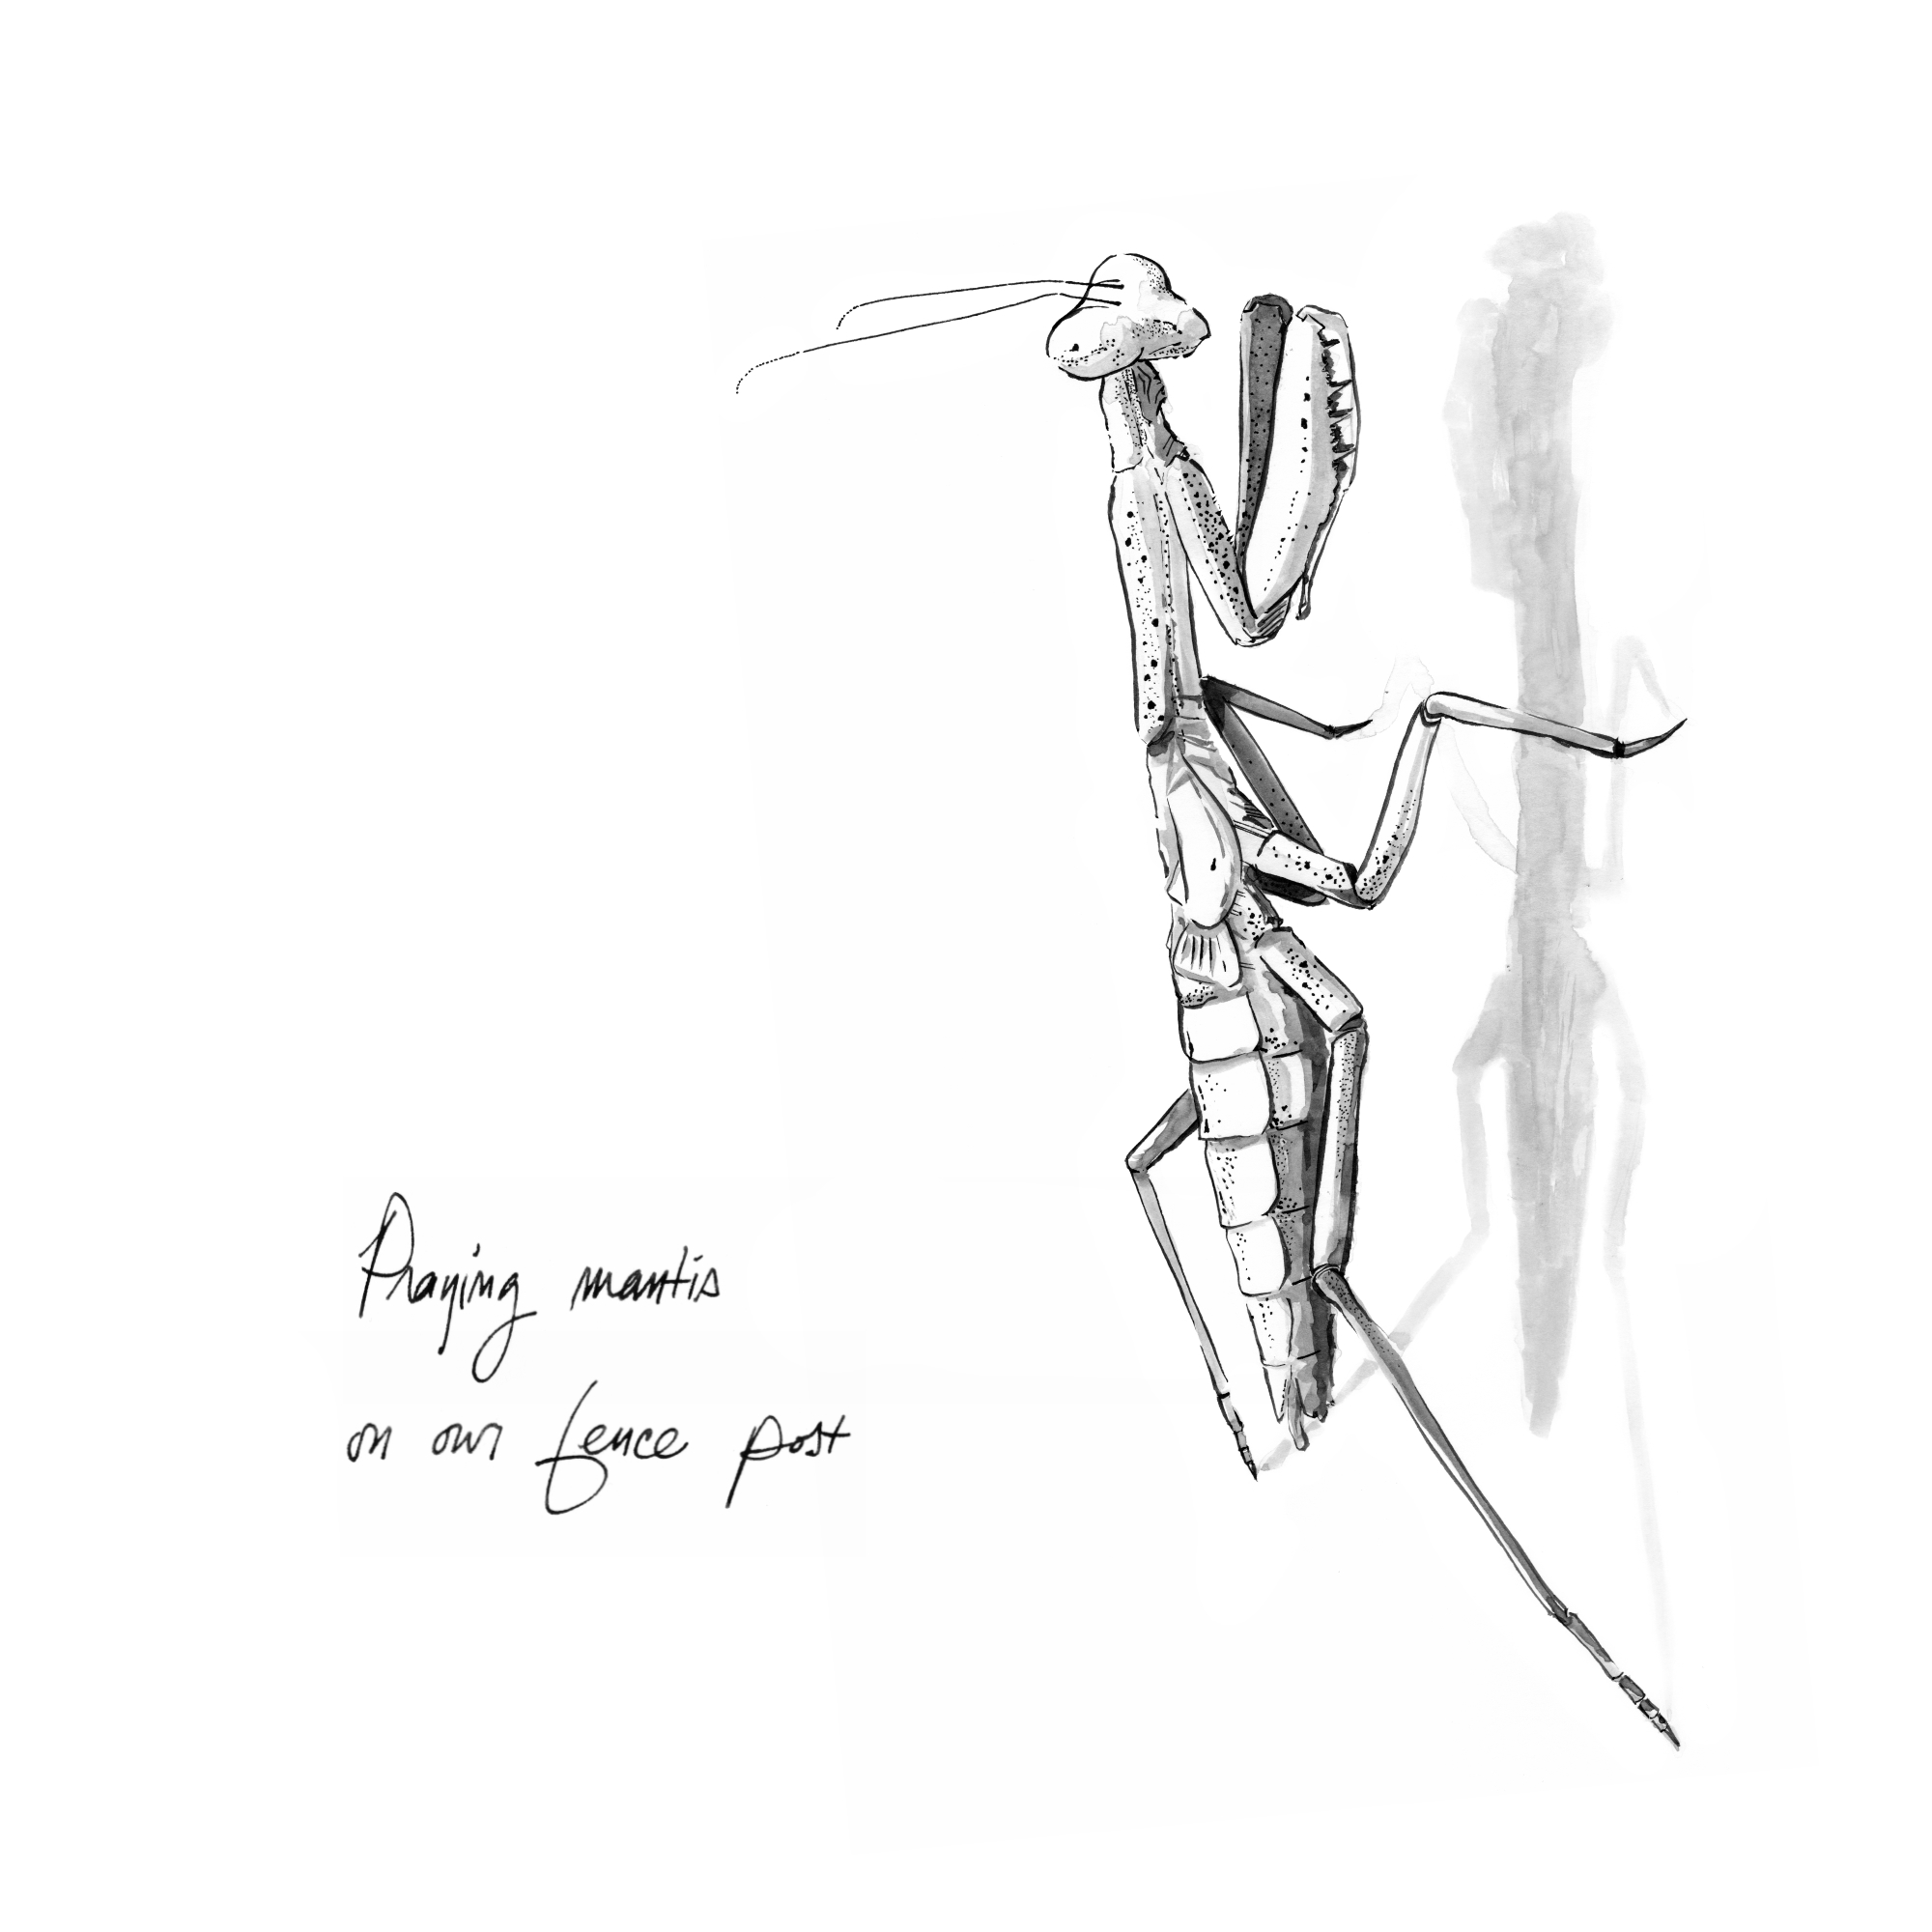 Praying mantis
on our fence post